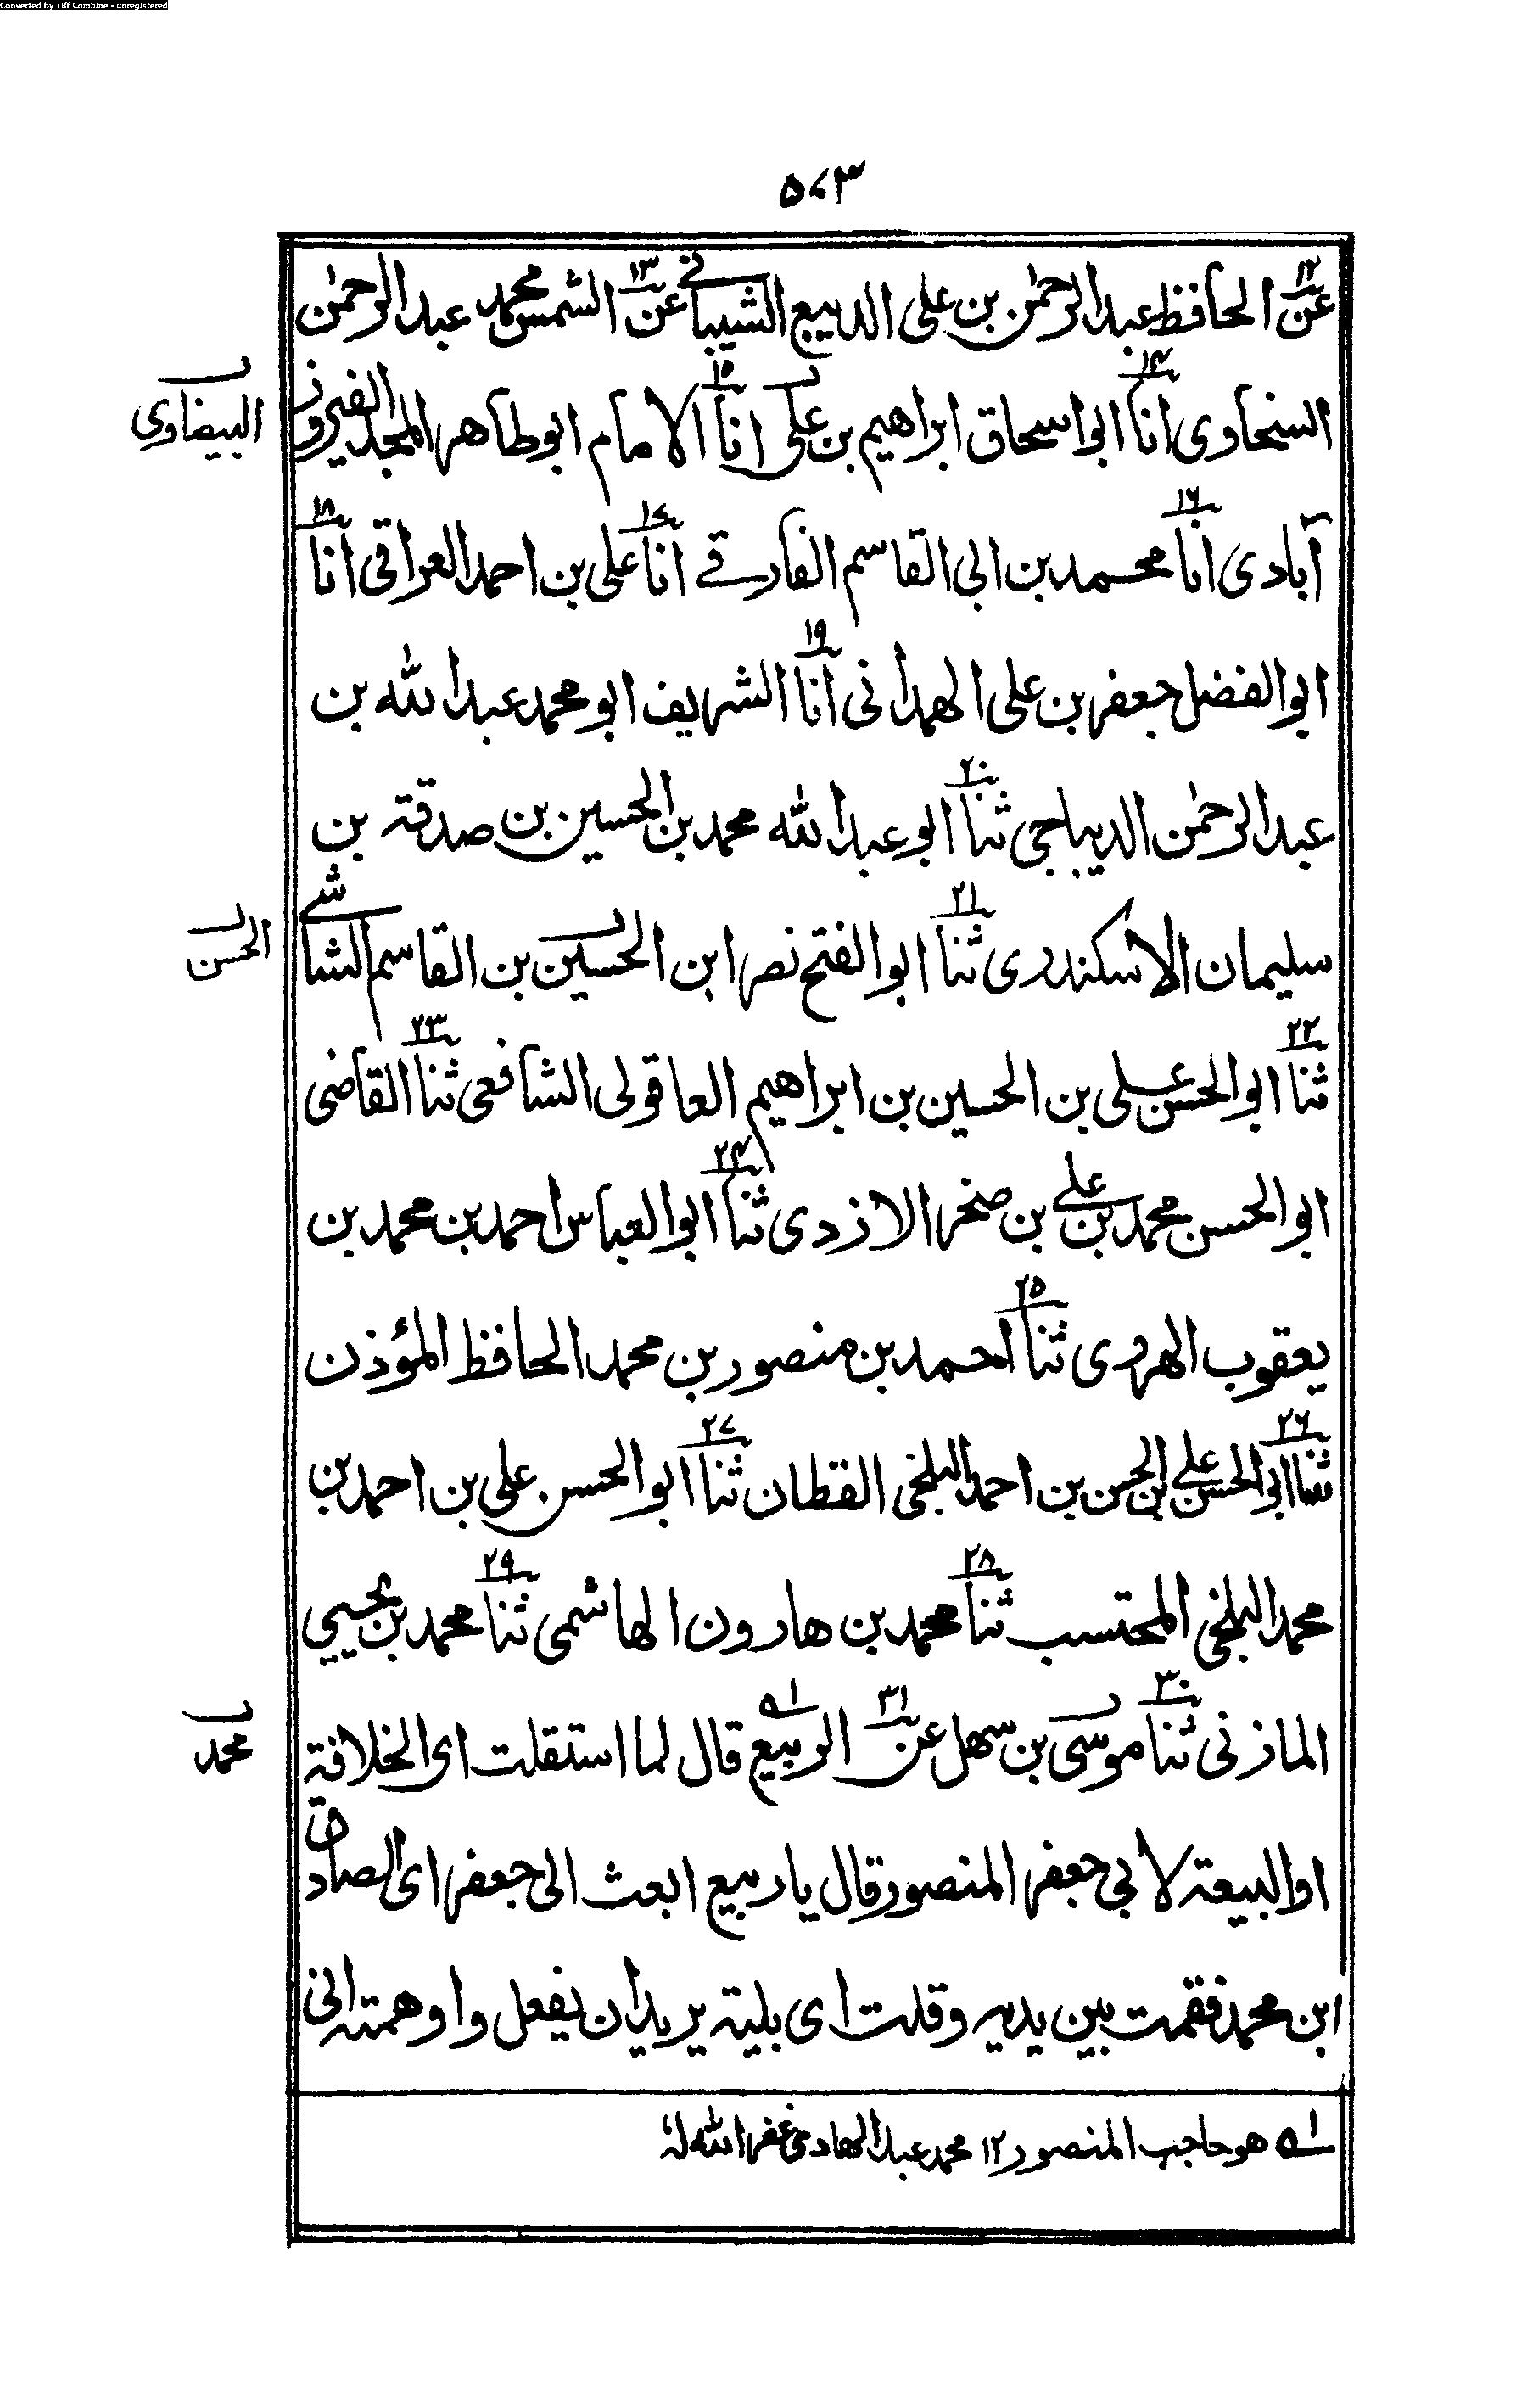 Converted by Tiff Combine - unregistered
۵۷۳
عن۱۲ الحافظ عبد الرحمٰن بن علی الدیبع الشیبانی عن۱۳ الشمس محمد عبد الرحمٰن
السخاوی انا۱۴ ابو اسحاق ابراهیم بن علی انا۱۵ الامام ابو طاهر المجد الفیروز
البیضاوی
آبادی انا۱۶ محمد بن ابی القاسم الفارقی انا۱۷ علی بن احمد العراقی انا۱۸
ابو الفضل جعفر بن علی الهمدانی انا۱۹ الشریف ابو محمد عبد الله بن
عبد الرحمٰن الدیباجی ثنا۲۰ ابو عبد الله محمد بن الحسین بن صدقة بن
سلیمان الاسکندری ثنا۲۱ ابو الفتح نصر ابن الحسین بن القاسم الشاشی
الحسن
ثنا۲۲ ابو الحسن علی بن الحسین بن ابراهیم العاقولی الشافعی ثنا۲۳ القاضی
ابو الحسن محمد بن علی بن صخر الازدی ثنا۲۴ ابو العباس احمد بن محمد بن
یعقوب الهروی ثنا۲۵ احمد بن منصور بن محمد الحافظ المؤذن
ثنا۲۶ ابو الحسن علی بن الحسن بن احمد البلخی القطان ثنا۲۷ ابو الحسن علی بن احمد بن
محمد البلخی المحتسب ثنا۲۸ محمد بن هارون الهاشمی ثنا۲۹ محمد بن یحیی
المازنی ثنا۳۰ موسی بن سهل عن۳۱ الربیع ۱ه قال لما استقلت ای الخلافة
محمد
او البیعة لابی جعفر المنصور قال یا ربیع ابعث الی جعفر ای الصادق
ابن محمد فقمت بین یدیه وقلت ای بلیة یرید ان یفعل واوهمته انی
۱ه هو حاجب المنصور ۱۲ محمد عبد الهادی غفر الله لهٗ